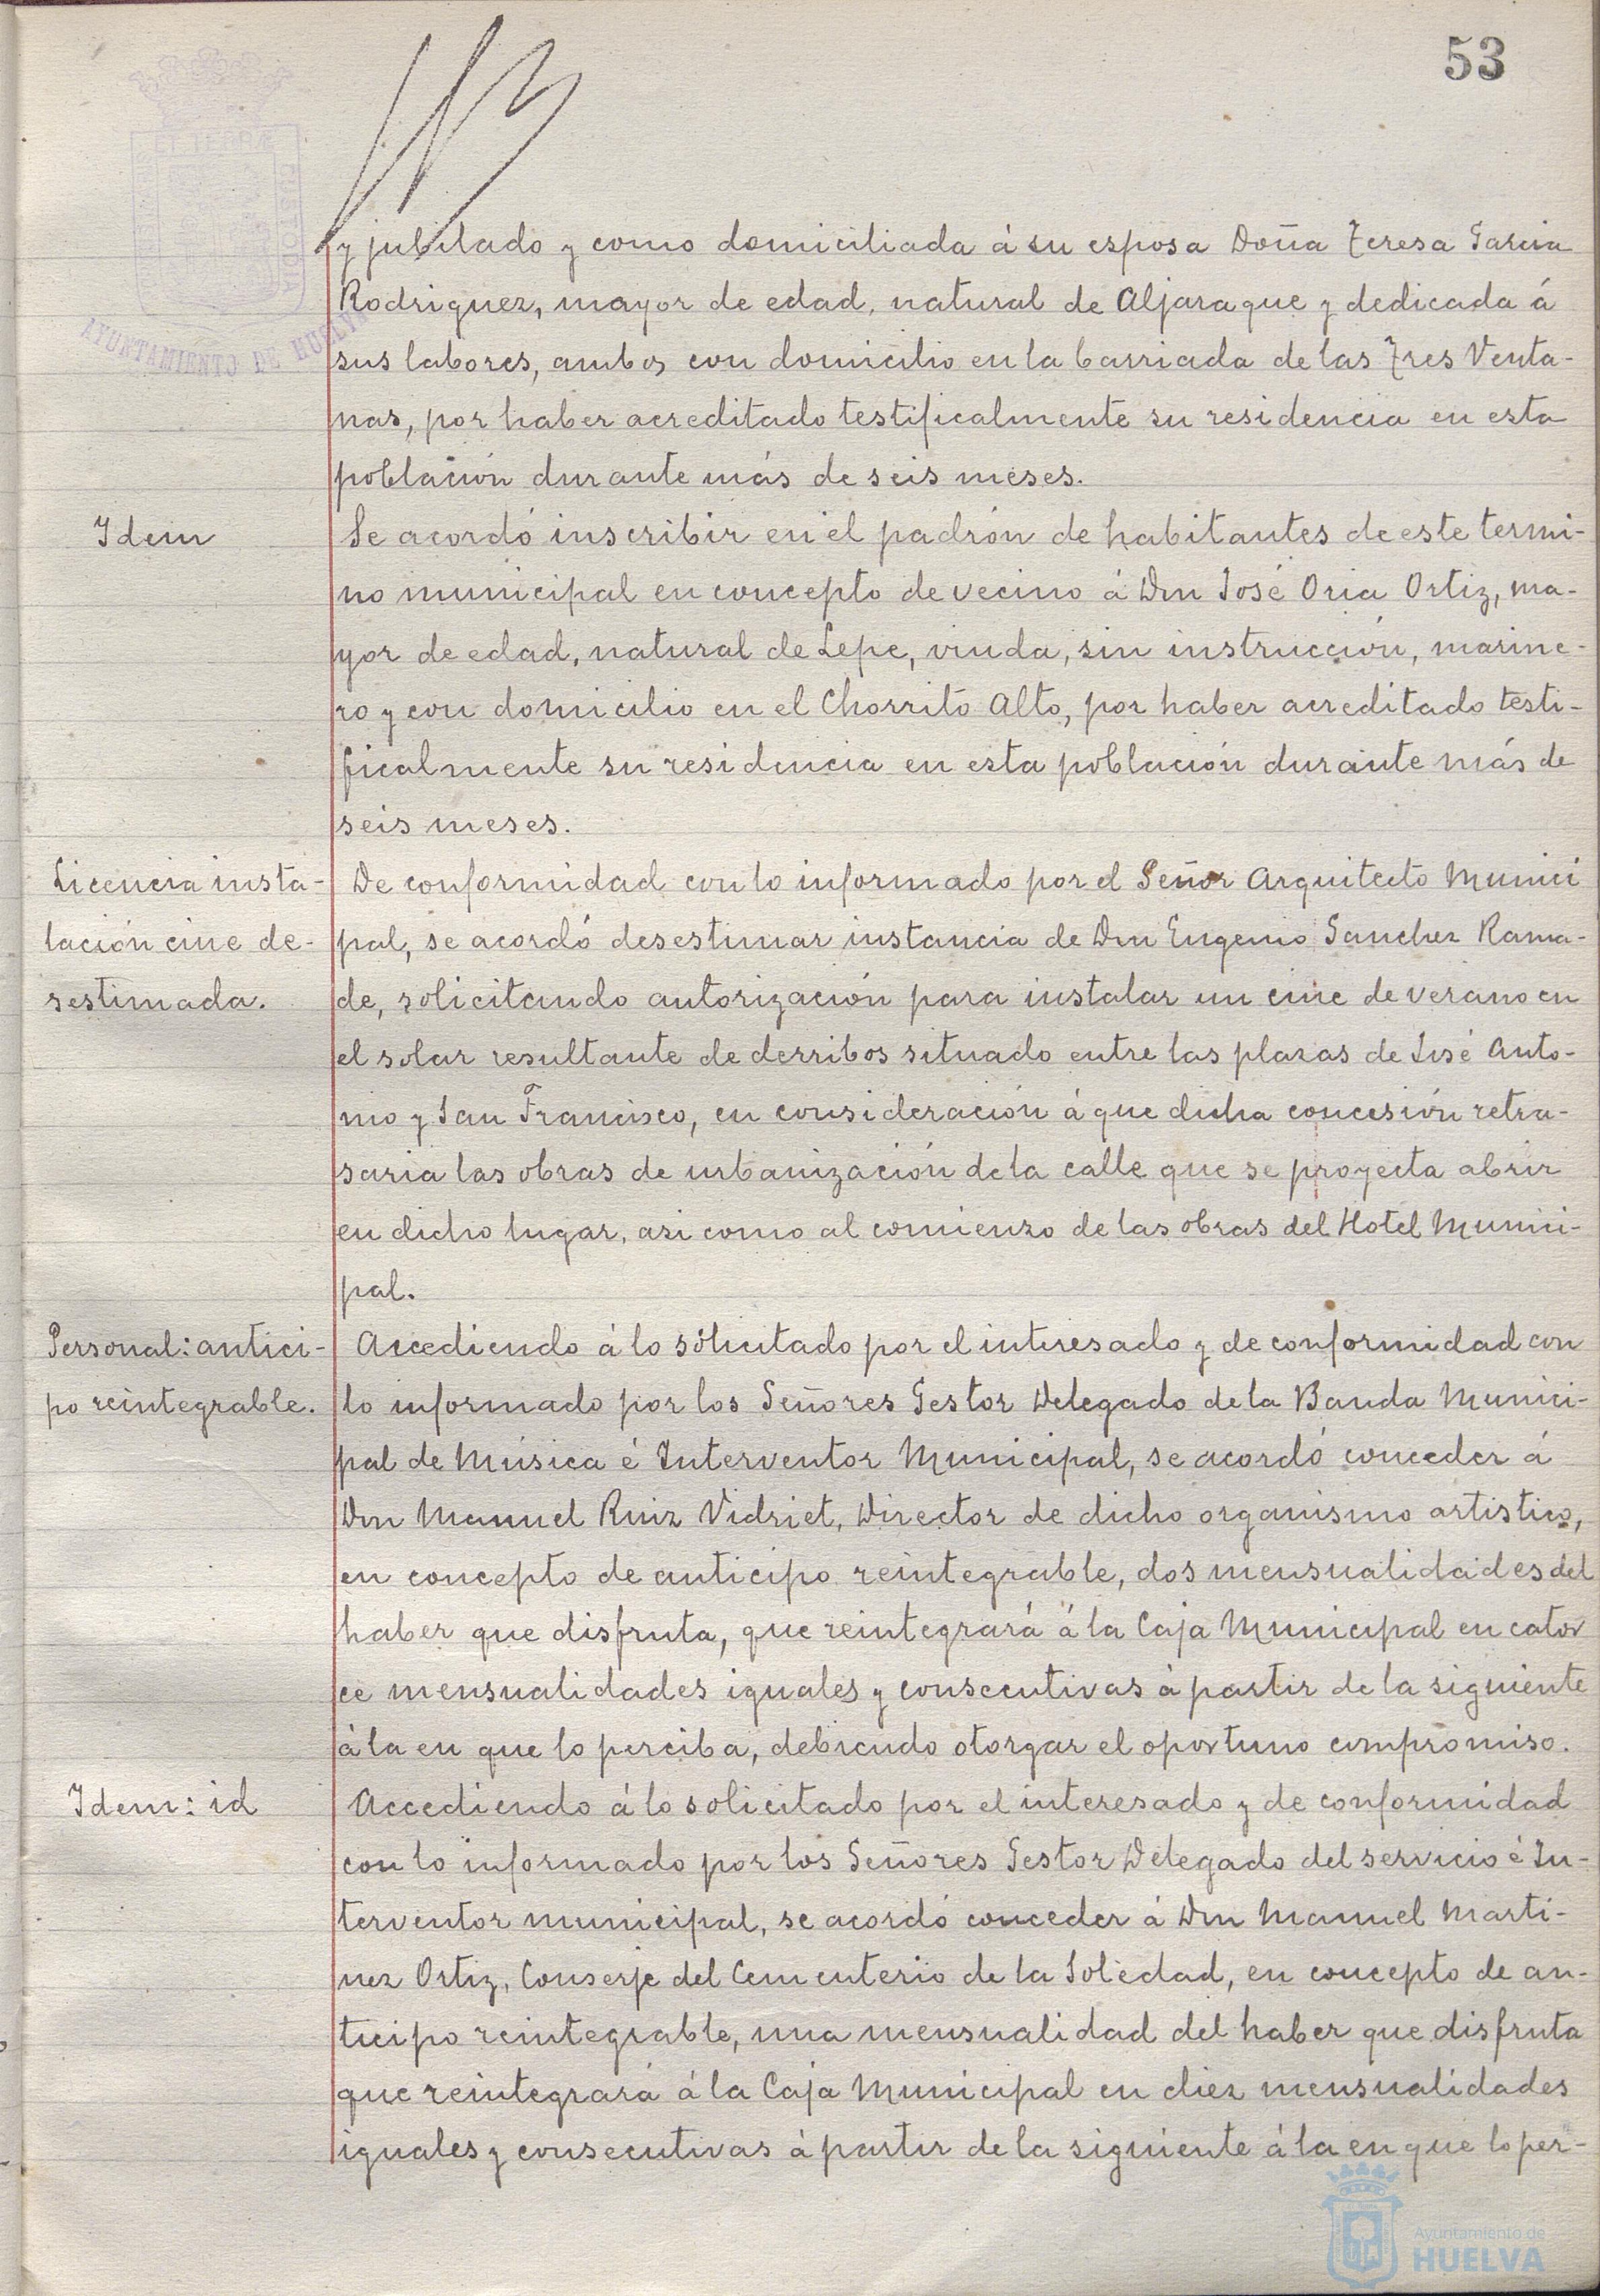 53
ET TERRÆ
AYUNTAMIENTO DE HUELVA
y jubilado y como domiciliada á su esposa Doña Teresa Garcia
Rodriguez, mayor de edad, natural de Aljaraque y dedicada á
sus labores, ambos con domicilio en la barriada de las Tres Venta-
nas, por haber acreditado testificalmente su residencia en esta
población durante más de seis meses.
Idem
Se acordó inscribir en el padrón de habitantes de este termi-
no municipal en concepto de vecino á Don José Oria Ortiz, ma-
yor de edad, natural de Lepe, viuda, sin instrucción, marine-
ro y con domicilio en el Chorrito Alto, por haber acreditado testi-
ficalmente su residencia en esta población durante más de
seis meses.
Licencia insta-
lación cine de-
sestimada.
De conformidad con lo informado por el Señor Arquitecto Munici
pal, se acordó desestimar instancia de Don Eugenio Sanchez Rama-
de, solicitando autorización para instalar un cine de verano en
el solar resultante de derribos situado entre las plazas de José Anto-
nio y San Francisco, en consideración á que dicha concesión retra-
saria las obras de urbanización de la calle que se proyecta abrir
en dicho lugar, asi como al comienzo de las obras del Hotel Munici-
pal.
Personal: antici-
po reintegrable.
Accediendo á lo solicitado por el interesado y de conformidad con
lo informado por los Señores Gestor Delegado de la Banda Munici-
pal de Música é Interventor Municipal, se acordó conceder á
Don Manuel Ruiz Vidriet, Director de dicho organismo artistico,
en concepto de anticipo reintegrable, dos mensualidades del
haber que disfruta, que reintegrará á la Caja Municipal en cator
ce mensualidades iguales y consecutivas á partir de la siguiente
á la en que lo perciba, debiendo otorgar el oportuno compromiso.
Idem: id
Accediendo á lo solicitado por el interesado y de conformidad
con lo informado por los Señores Gestor Delegado del servicio é In-
terventor municipal, se acordó conceder á Don Manuel Marti-
nez Ortiz, Conserje del Cementerio de la Soledad, en concepto de an-
ticipo reintegrable, una mensualidad del haber que disfruta
que reintegrará á la Caja Municipal en diez mensualidades
iguales y consecutivas á partir de la siguiente á la en que lo per-
Ayuntamiento de
HUELVA